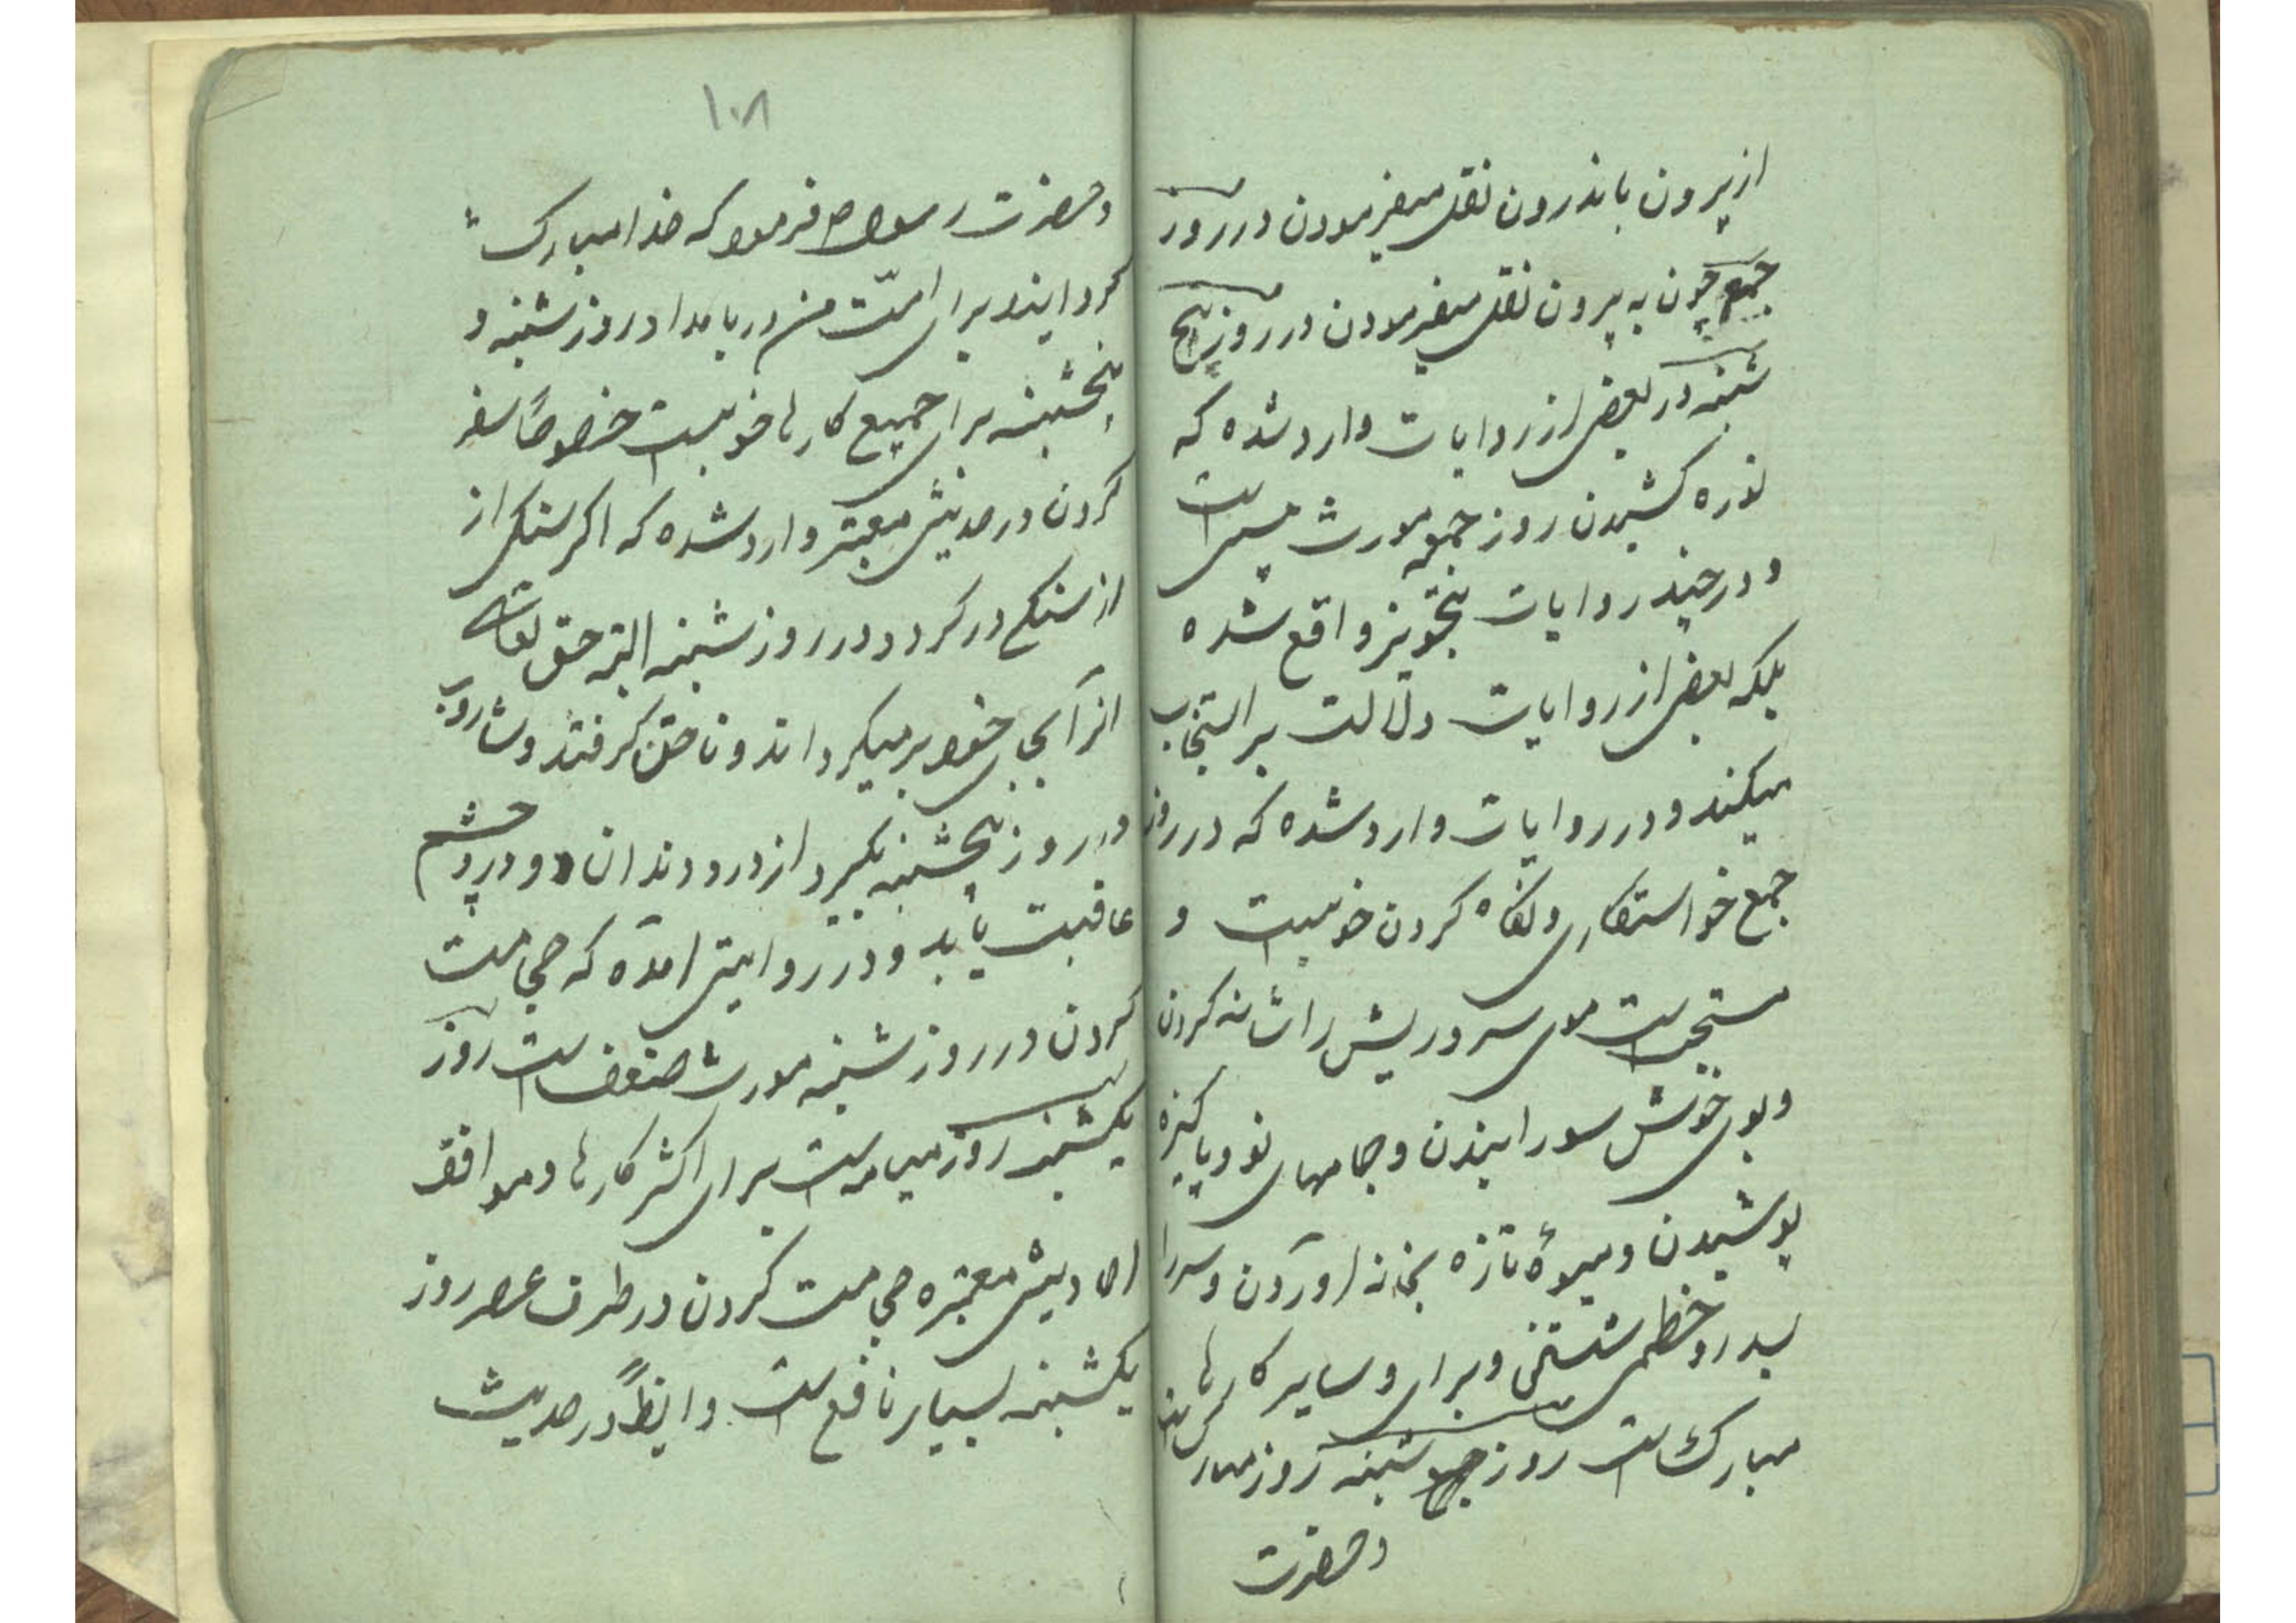 از بیرون باندرون نقل میفرمودن در روز
جمع چون به بیرون نقل میفرمودن در روز پنج
شنبه در بعضی از روایات وارد شده که
نوره کشیدن روز جمعه مورث پیسی است
و در چند روایات تجویز واقع شده
بلکه بعضی از روایات دلالت بر استحباب
میکند و در روایات وارد شده که در روز
جمع خواستکاری و نکاه کردن خوبست و
مستحبست موی سر و ریش را شانه کردن
و بوی خوش سورانیدن و جامهای نو و پاکیزه
پوشیدن و میوهٔ تازه بخانه اوردن و سر را
بسدر و خطمی شستنی و برای و سایر کارها
مبارک است روز جمع شنبه روز مبارکی است
و حضرت
۱۰۸
و حضرت رسول ص فرمود که خدا مبارک
کردایند برای امّت من در بامداد روز شنبه و
پنجشنبه برای جمیع کارها خوبست خصوصاً سفر
کردن در حدیثی معتبر وارد شده که اکر سنکی از
از سنکی در کردد در روز شنبه البته حق تعالی
انرا بجای خود بر میکرداند و ناخن کرفتند و شارب
در روز پنجشنبه بکیرد از درد دندان و درد چشم
عاقبت یابد و در روایتی امده که حجامت
کردن در روز شنبه مورث ضعف است روز
یکشنبه روز میانه است برای اکثر کارها و موافق
احادیثی معتبره حجامت کردن در طرف عصر روز
یکشنبه بسیار نافع است و ایظاً در حدیث